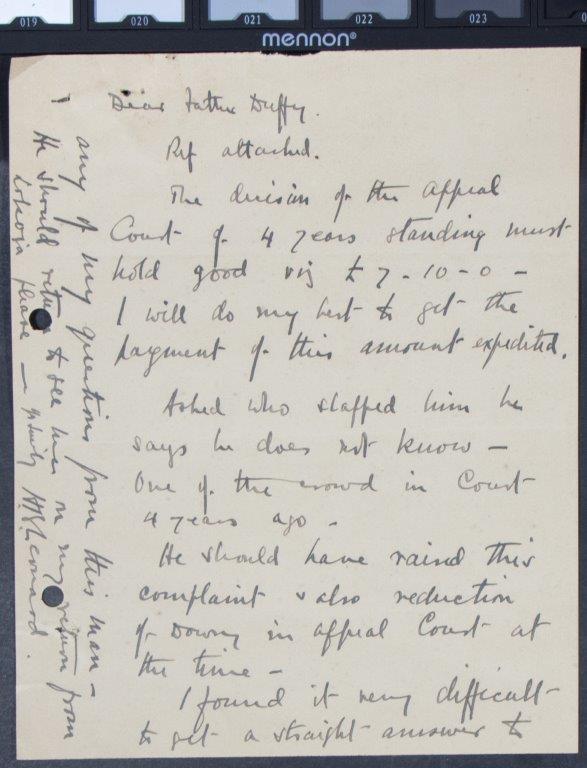 019 020 021 022 023
mennon®
Dear Father Duffy.
Ref attached.
The decision of the Appeal
Court of 4 years standing must
hold good viz £7-10-0 -
I will do my best to get the
payment of this amount expedited.
Asked who slapped him he
says he does not know -
One of the crowd in Court
4 years ago -
He should have raised this
complaint & also reduction
of Dowry in Appeal Court at
the time -
I found it very difficult
to get a straight answer to
any of my questions from this man -
He should return to see me on my return from
Lokoja please -